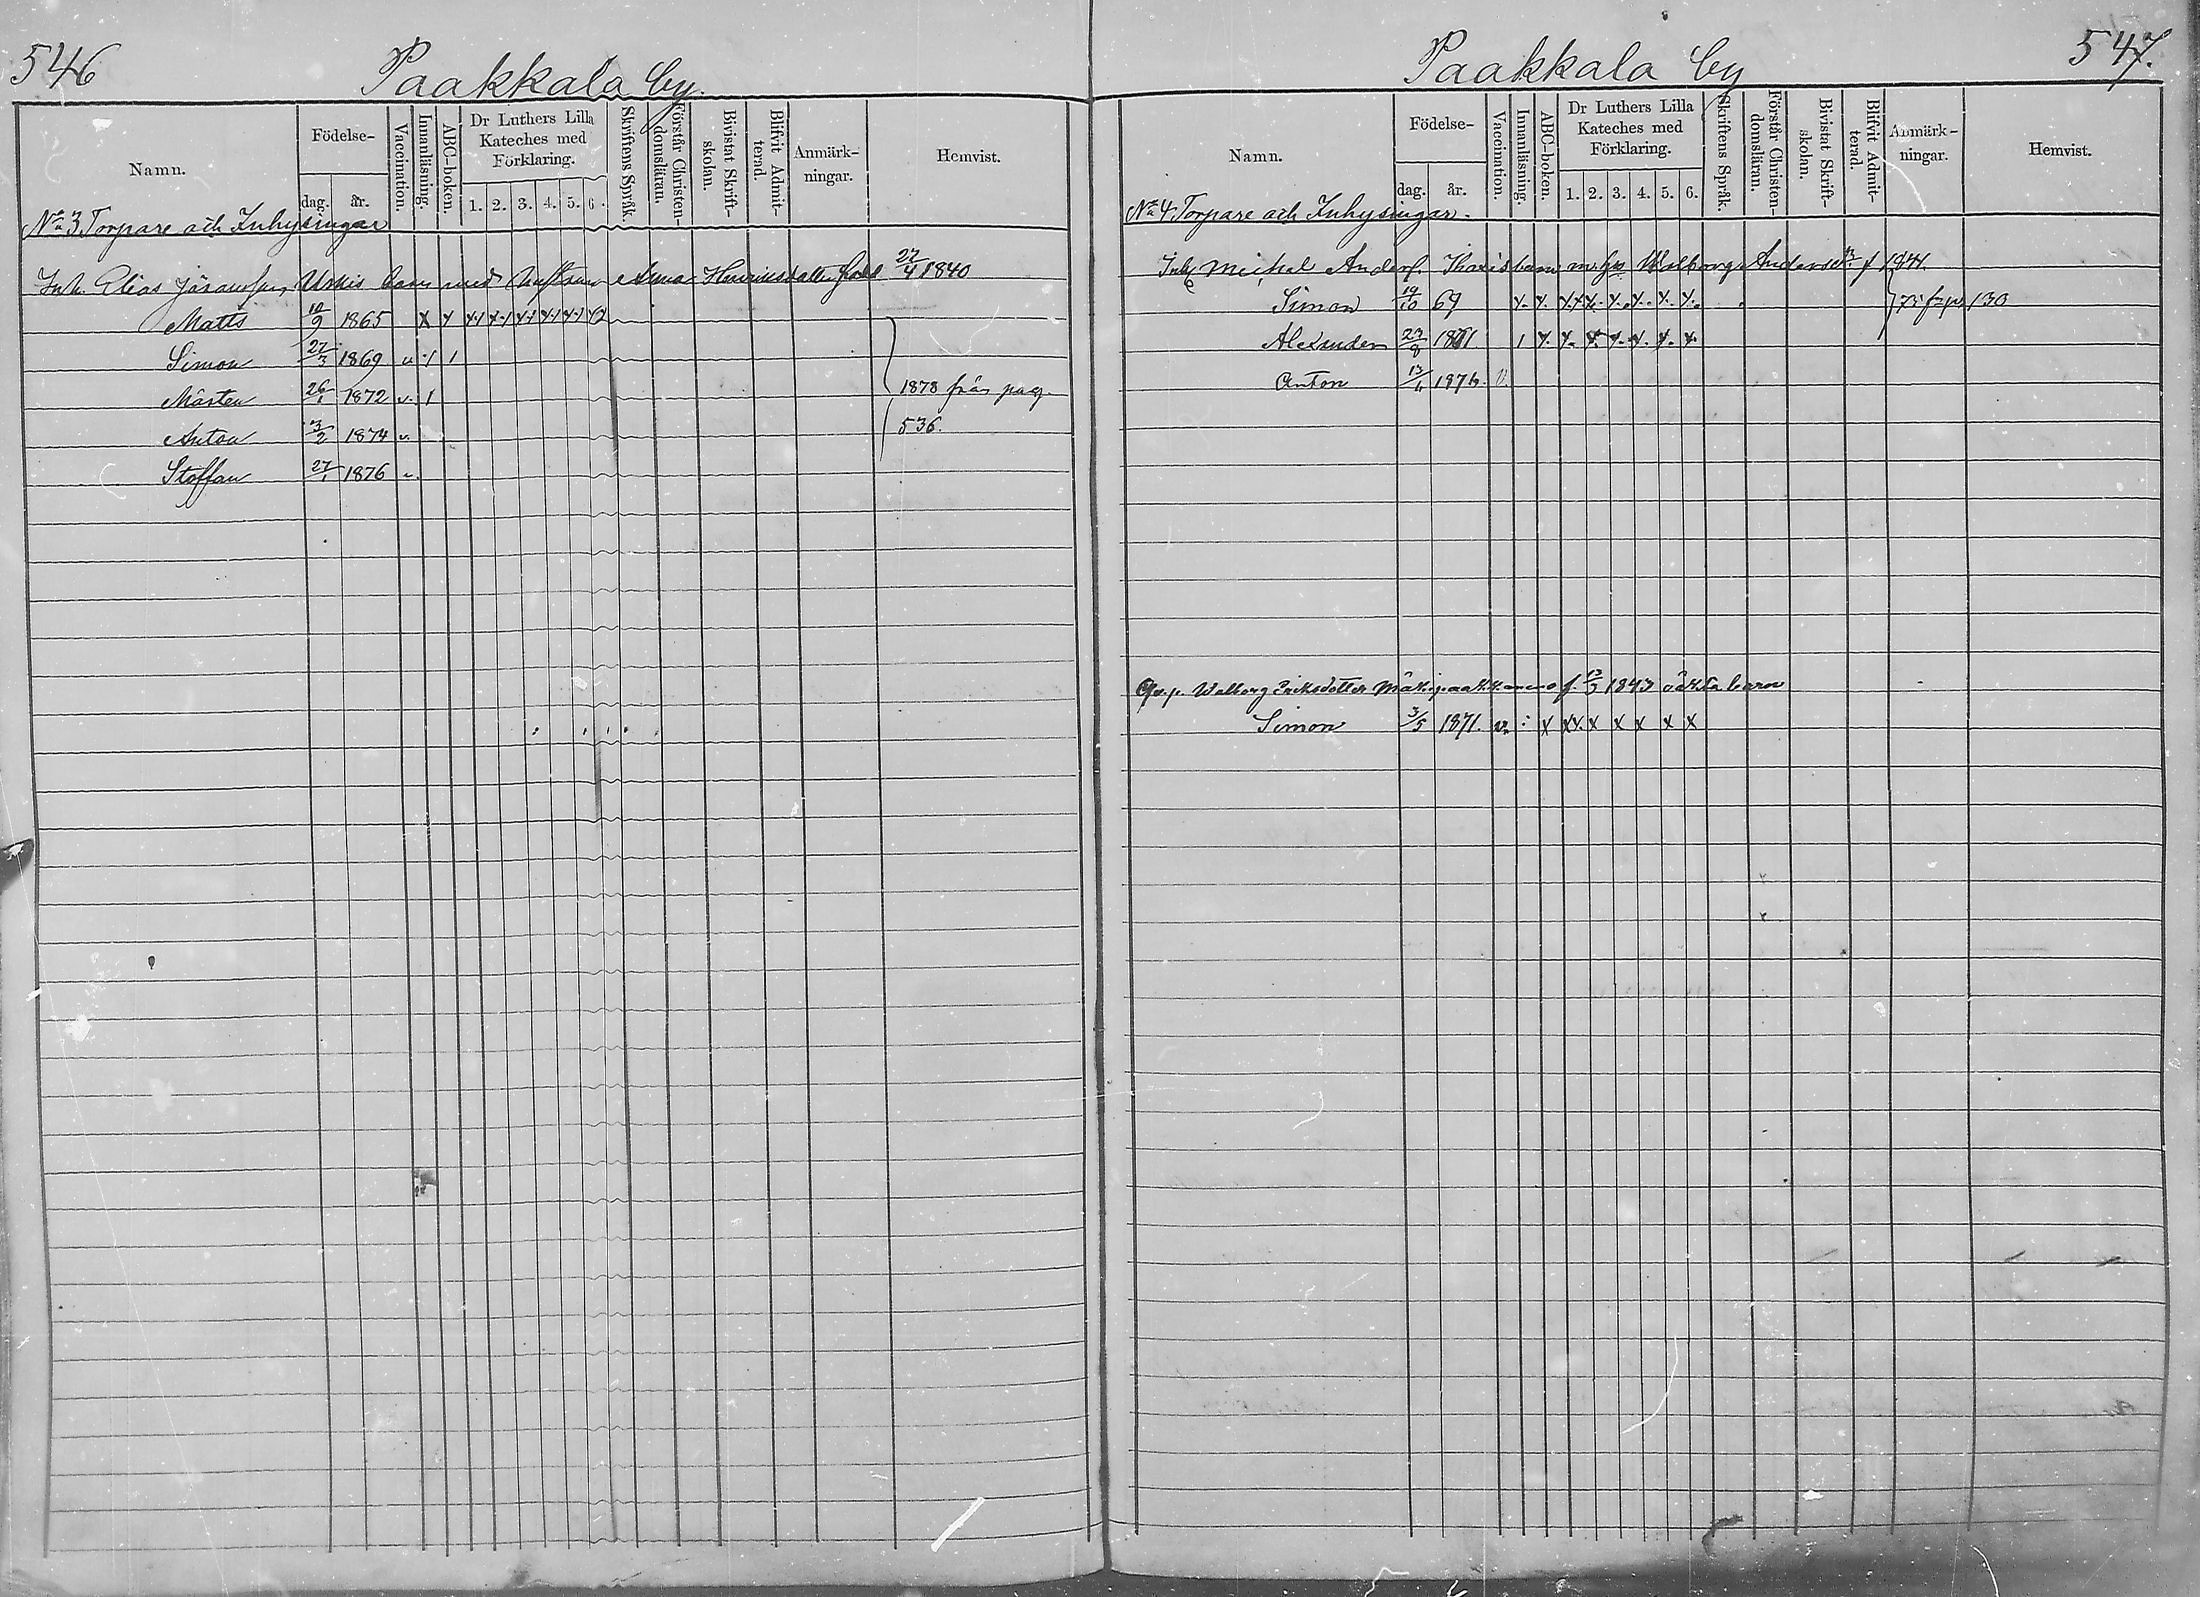 546
Paakkala by.
Namn. Födelse- dag. år. Vaccination. Innanläsning. ABC-boken. Dr Luthers Lilla Kateches med Förklaring. 1. 2. 3. 4. 5. 6. Skriftens Språk. Förstår Christen-domsläran. Bivistat Skrift-skolan. Blifvit Admit-terad. Anmärk-ningar. Hemvist.
No 3 Torpare och Inhysingar
Inh. Elias barn med Anna Henriksdotter född 27/4 1840
Matts 10/9 1865 x x
Simon 27/3 1869 v 1 1
Mårten 26/1 1872 v. 1
1878 från pag.
Anton 3/2 1874 v.
536.
Staffan 27/1 1876 v.
547.
Paakkala by
Namn. Födelse- dag. år. Vaccination. Innanläsning. ABC-boken. Dr Luthers Lilla Kateches med Förklaring. 1. 2. 3. 4. 5. 6. Skriftens Språk. Förstår Christen-domsläran. Bivistat Skrift-skolan. Blifvit Admit-terad. Anmärk-ningar. Hemvist.
No 4. Torpare och Inhysingar.
Inh Michel Anders. barn m. Walborg Andersdr f 1841.
Simon 19/10 69 x. x. x x x. x. x. x. x.
Alexander 23/8 1871 1 x. x. x. x. x. x. x.
Anton 13/4 187 v.
Qv.p. Walborg Eriksdotter f. 13/3 1843 oäkta barn
Simon 3/5 1871. v. : x x x. x x x x x